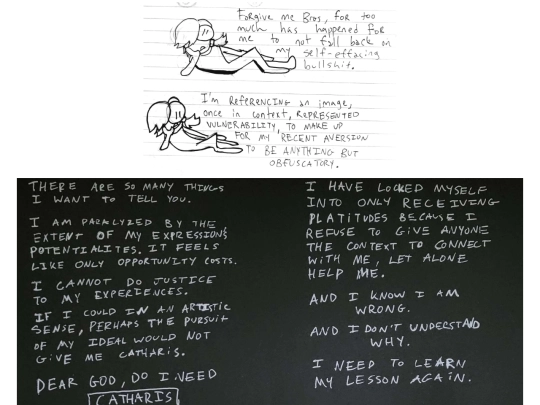 Forgive me Bros, for too
much has happened for
me to not fall back on
my self-effacing
bullshit.
I'm REFERENCING an image,
once in context, REPRESENTED
VULNERABILITY, TO MAKE UP
FOR MY RECENT AVERSION
TO BE ANYTHING BUT
OBFUSCATORY.
THERE ARE SO MANY THINGS
I WANT TO TELL YOU.
I AM PARALYZED BY THE
EXTENT OF MY EXPRESSION'S
POTENTIALITES. IT FEELS
LIKE ONLY OPPORTUNITY COSTS.
I CANNOT DO JUSTICE
TO MY EXPERIENCES.
IF I COULD IN AN ARTISTIC
SENSE, PERHAPS THE PURSUIT
OF MY IDEAL WOULD NOT
GIVE ME CATHARIS.
DEAR GOD, DO I NEED
CATHARIS
I HAVE LOCKED MYSELF
INTO ONLY RECEIVING
PLATITUDES BECAUSE I
REFUSE TO GIVE ANYONE
THE CONTEXT TO CONNECT
WITH ME, LET ALONE
HELP ME.
AND I KNOW I AM
WRONG.
AND I DON'T UNDERSTAND
WHY.
I NEED TO LEARN
MY LESSON AGAIN.